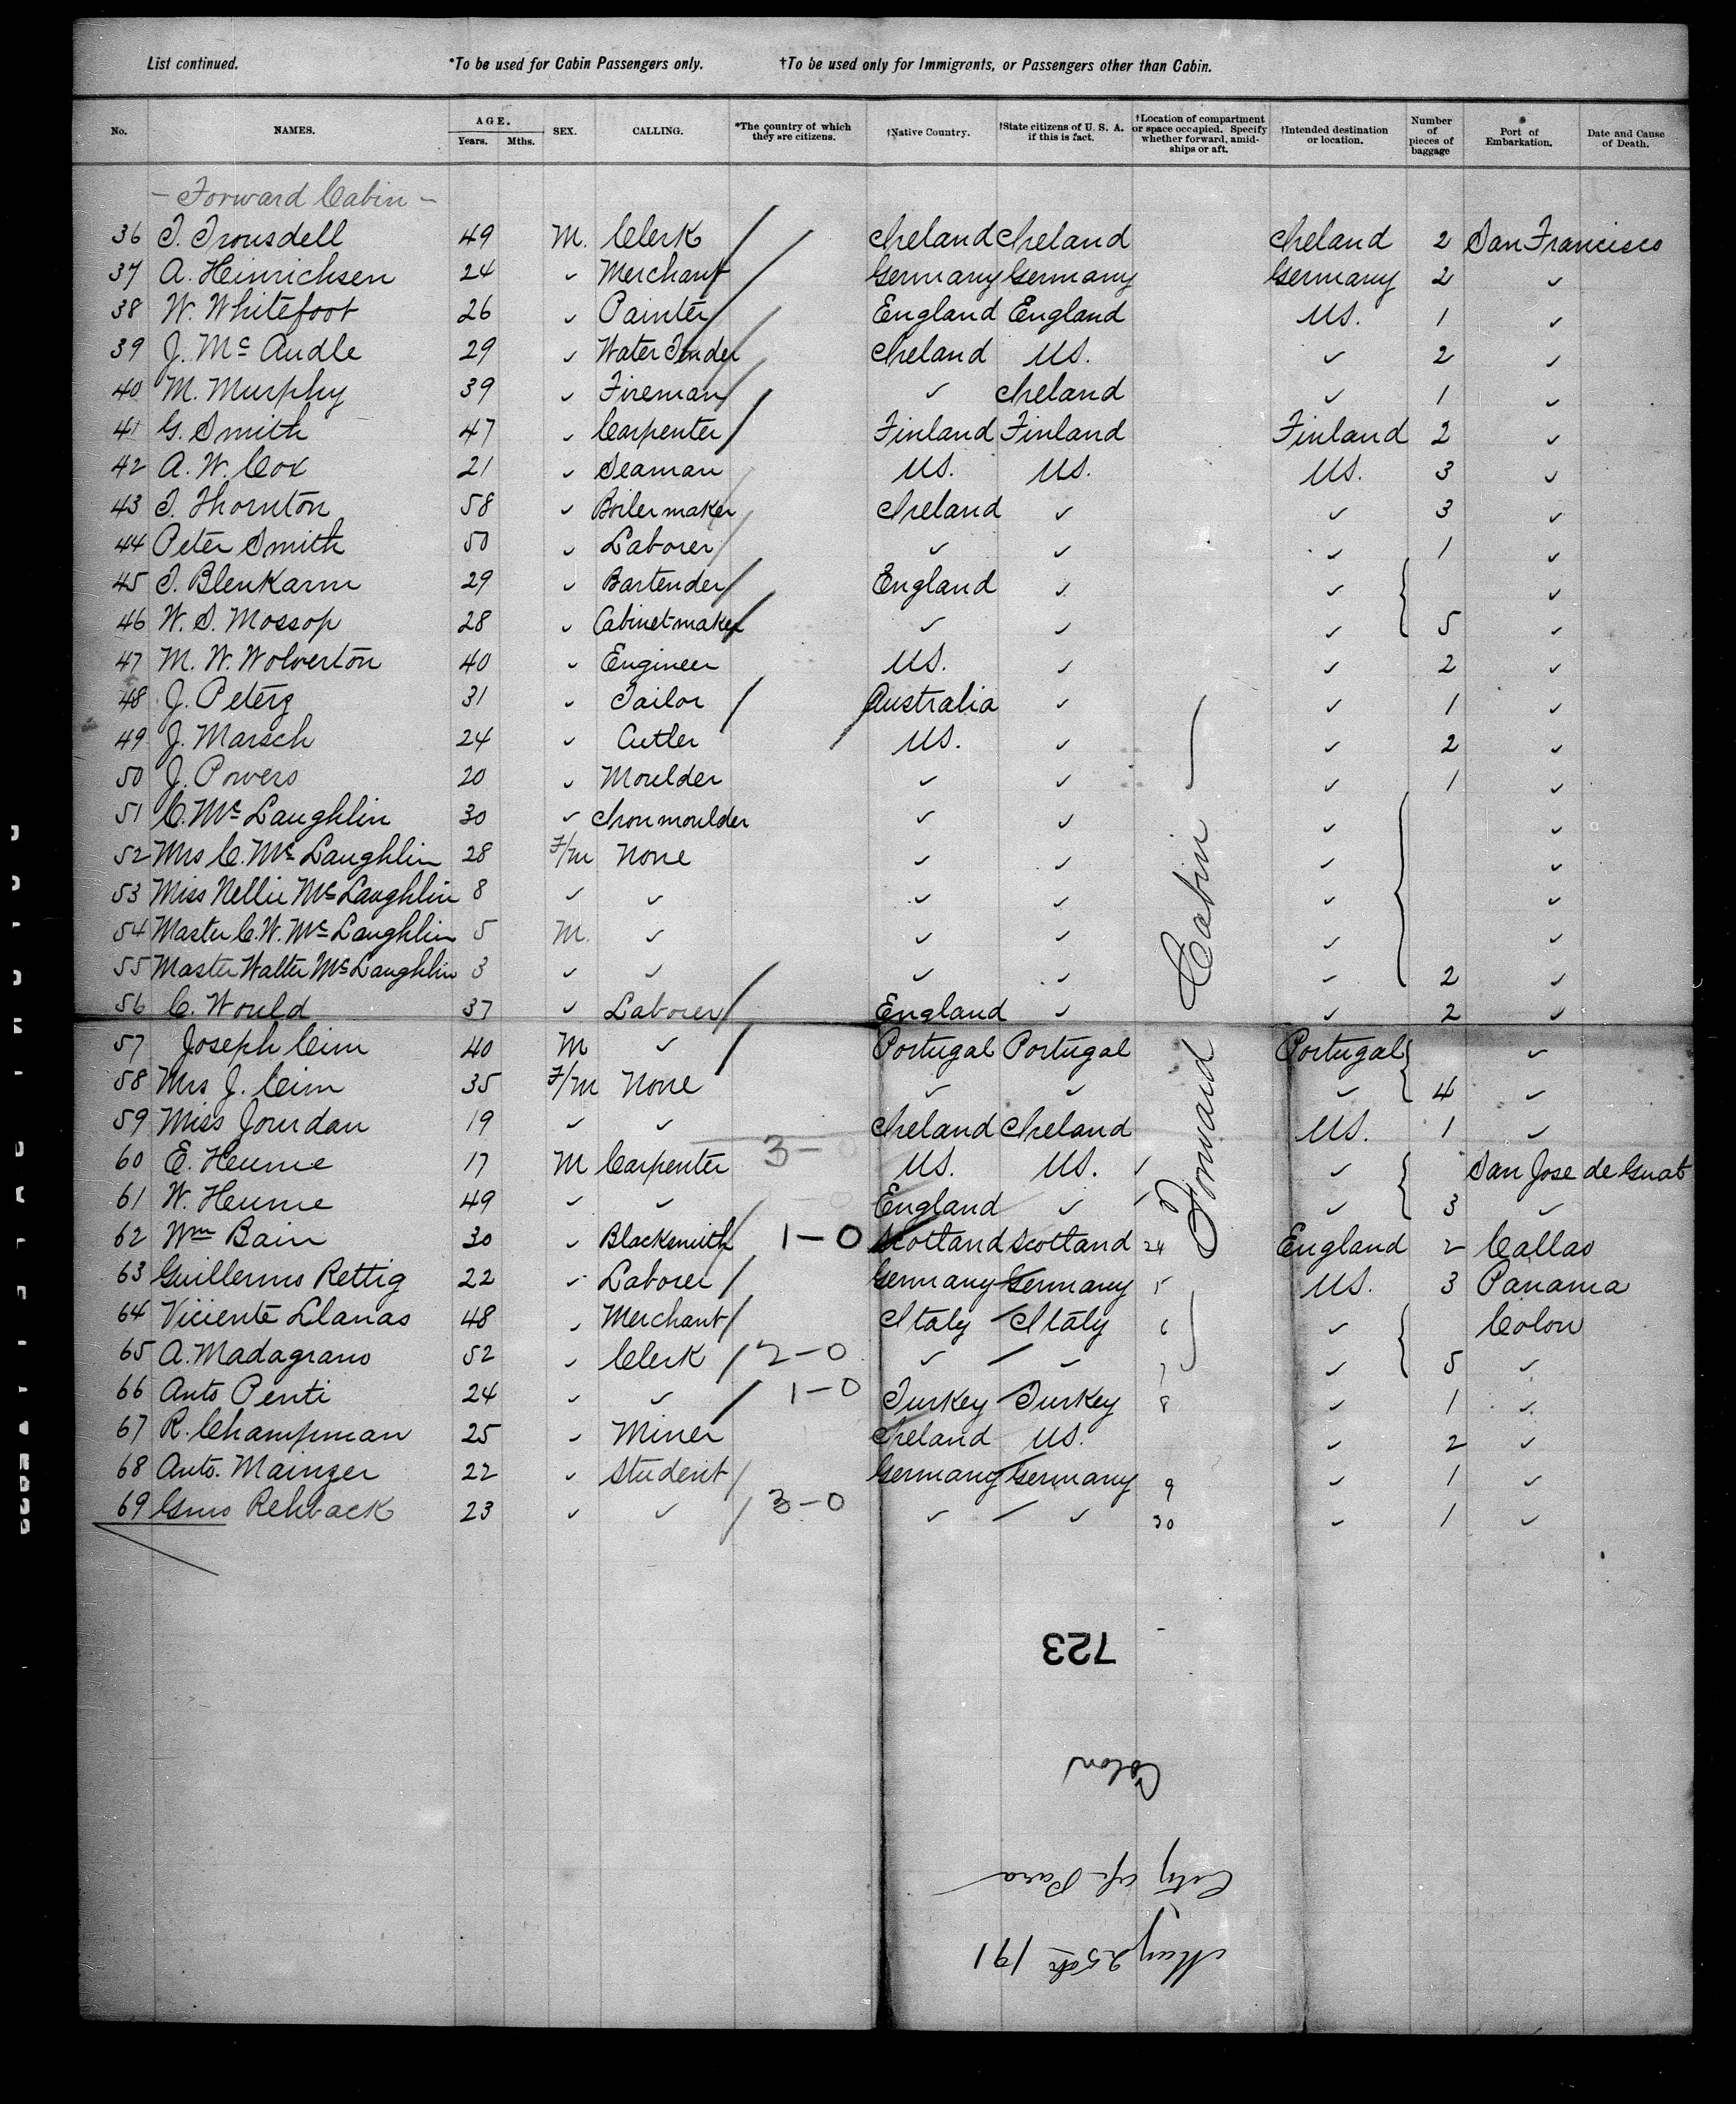 List continued. *To be used for Cabin Passengers only. †To be used only for Immigrants, or Passengers other than Cabin.
No. NAMES. AGE. Years. Mths. SEX. CALLING. *The country of which they are citizens. †Native Country. †State citizens of U. S. A. if this is fact. †Location of compartment or space occupied. Specify whether forward, amidships or aft. †Intended destination or location. Number of pieces of baggage Port of Embarkation. Date and Cause of Death.
- Forward Cabin -
36 T. Trousdell 49 M. Clerk / Ireland Ireland Ireland 2 San Francisco
37 A. Heinrichsen 24 ✓ Merchant / Germany Germany Germany 2 ✓
38 W. Whitefoot 26 ✓ Painter / England England US. 1 ✓
39 J. Mc Audle 29 ✓ Water Tender Ireland US. ✓ 2 ✓
40 M. Murphy 39 ✓ Fireman / ✓ Ireland ✓ 1 ✓
41 G. Smith 47 ✓ Carpenter / Finland Finland Finland 2 ✓
42 A. W. Cox 21 ✓ Seaman US. US. US. 3 ✓
43 T. Thornton 58 ✓ Boilermaker Ireland ✓ ✓ 3 ✓
44 Peter Smith 50 ✓ Laborer ✓ ✓ ✓ 1 ✓
45 T. Blenkarm 29 ✓ Bartender / England ✓ ✓ ✓
46 W. S. Mossop 28 ✓ Cabinetmaker / ✓ ✓ ✓ 5 ✓
47 M. W. Wolverton 40 ✓ Engineer US. ✓ ✓ 2 ✓
48 J. Peterz 31 ✓ Tailor / Australia ✓ ✓ 1 ✓
49 J. Marsch 24 ✓ Cutler US. ✓ ✓ 2 ✓
50 J. Powers 20 ✓ Moulder ✓ ✓ ✓ 1 ✓
51 C. Mc Laughlin 30 ✓ Ironmoulder ✓ ✓ ✓ ✓
52 Mrs C. Mc Laughlin 28 F/m None ✓ ✓ ✓ ✓
53 Miss Nellie Mc Laughlin 8 ✓ ✓ ✓ ✓ ✓ ✓
54 Master C. W. Mc Laughlin 5 M. ✓ ✓ ✓ ✓ ✓
55 Master Walter Mc Laughlin 3 ✓ ✓ ✓ ✓ ✓ 2 ✓
56 C. Would 37 ✓ Laborer / England ✓ ✓ 2 ✓
57 Joseph Cim 40 M ✓ / Portugal Portugal Portugal ✓
58 Mrs J. Cim 35 F/m None ✓ ✓ ✓ 4 ✓
59 Miss Jourdan 19 ✓ ✓ Ireland Ireland US. 1 ✓
60 E. Heume 17 M Carpenter 3-0 US. US. ✓ San Jose de Guat
61 W. Heume 49 ✓ ✓ England ✓ ✓ 3 ✓
62 Wm Bain 30 ✓ Blacksmith / 1-0 Scotland Scotland 24 England 2 Callao
63 Guillermo Rettig 22 ✓ Laborer / Germany Germany 5 US. 3 Panama
64 Viciente Llanas 48 ✓ Merchant / Italy Italy 6 ✓ Colon
65 A. Madagrano 52 ✓ Clerk / 2-0 ✓ ✓ 7 ✓ 5 ✓
66 Anto Penti 24 ✓ ✓ / 1-0 Turkey Turkey 8 ✓ 1 ✓
67 R. Champman 25 ✓ Miner Ireland US. ✓ 2 ✓
68 Anto. Mainzer 22 ✓ Student / Germany Germany 9 ✓ 1 ✓
69 Gmo Rehback 23 ✓ ✓ / 3-0 ✓ ✓ 30 ✓ 1 ✓
Forward Cabin
723
Colon
City of Para
May 25th /91